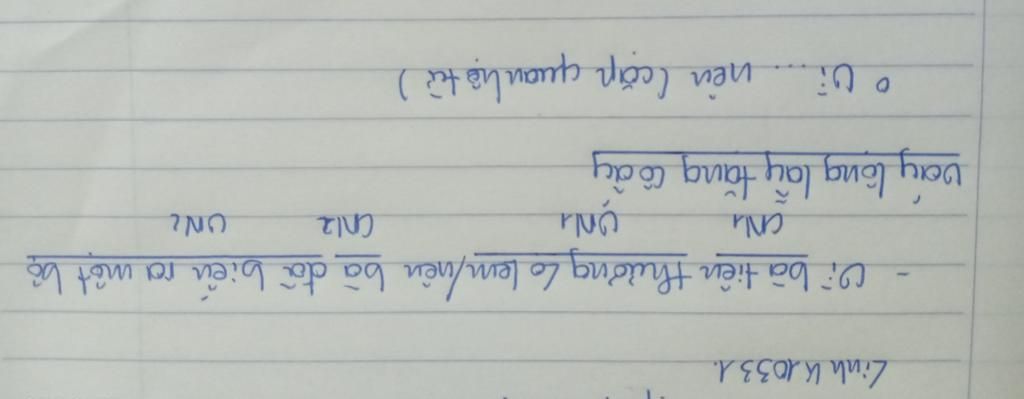 Linh K10331.
- Vì bà tiên thương Lọ lem/nên bà đã biến ra một bộ
CN1 VN1 CN2 VN2
váy lộng lẫy tặng cô ấy
o Vì... nên (cặp quan hệ từ)